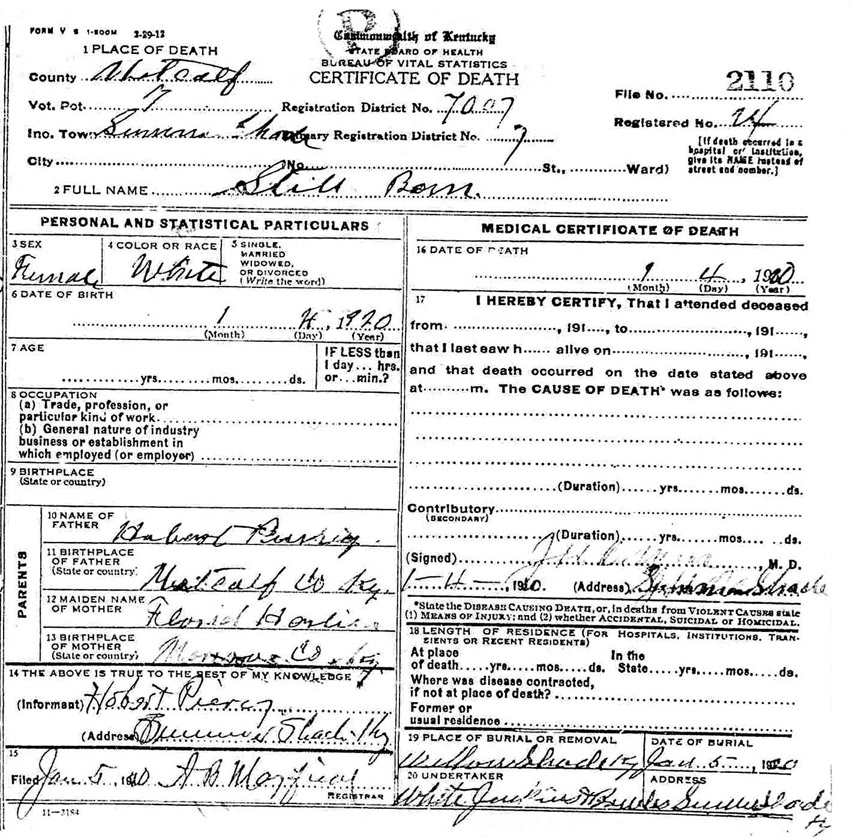 FORM V S 1-500M 2-29-12
Commonwealth of Kentucky
STATE BOARD OF HEALTH
BUREAU OF VITAL STATISTICS
CERTIFICATE OF DEATH
1 PLACE OF DEATH
County Metcalf
File No. 2110
Vot. Pot. 7 Registration District No. 7007
Registered No. 24
Inc. Town Summer Shade Primary Registration District No. 7
[If death occurred in a hospital or institution, give its NAME instead of street and number.]
City No. St., Ward)
2 FULL NAME Still Born.
PERSONAL AND STATISTICAL PARTICULARS
3 SEX Female
4 COLOR OR RACE White
5 SINGLE, MARRIED WIDOWED, OR DIVORCED (Write the word)
6 DATE OF BIRTH
1 4, 1920
(Month) (Day) (Year)
7 AGE
yrs. mos. ds.
IF LESS than 1 day... hrs. or... min.?
8 OCCUPATION
(a) Trade, profession, or particular kind of work
(b) General nature of industry business or establishment in which employed (or employer)
9 BIRTHPLACE
(State or country)
PARENTS
10 NAME OF FATHER Hobert
11 BIRTHPLACE OF FATHER (State or country) Metcalf Co Ky.
12 MAIDEN NAME OF MOTHER
13 BIRTHPLACE OF MOTHER (State or country) Monroe Co Ky
14 THE ABOVE IS TRUE TO THE BEST OF MY KNOWLEDGE
(Informant) Hobert Piercy
(Address) Summer Shade Ky
15
Filed Jan 5 1910 A B
REGISTRAR
11-3184
MEDICAL CERTIFICATE OF DEATH
16 DATE OF DEATH
1 4, 1920
(Month) (Day) (Year)
17 I HEREBY CERTIFY, That I attended deceased
from , 191 , to , 191 ,
that I last saw h alive on , 191 ,
and that death occurred on the date stated above
at m. The CAUSE OF DEATH* was as follows:
(Duration) yrs. mos. ds.
Contributory
(SECONDARY)
(Duration) yrs. mos. ds.
(Signed) M. D.
1-4- 1910. (Address) Summer Shade
*State the DISEASE CAUSING DEATH, or, in deaths from VIOLENT CAUSES state
(1) MEANS OF INJURY; and (2) whether ACCIDENTAL, SUICIDAL OR HOMICIDAL.
18 LENGTH OF RESIDENCE (FOR HOSPITALS, INSTITUTIONS, TRANSIENTS OR RECENT RESIDENTS)
At place of death yrs. mos. ds. In the State yrs. mos. ds.
Where was disease contracted,
if not at place of death?
Former or
usual residence
19 PLACE OF BURIAL OR REMOVAL
Shade Ky
DATE OF BURIAL
Jan 5- 1920
20 UNDERTAKER
White Jenkins
ADDRESS
Summer Shade